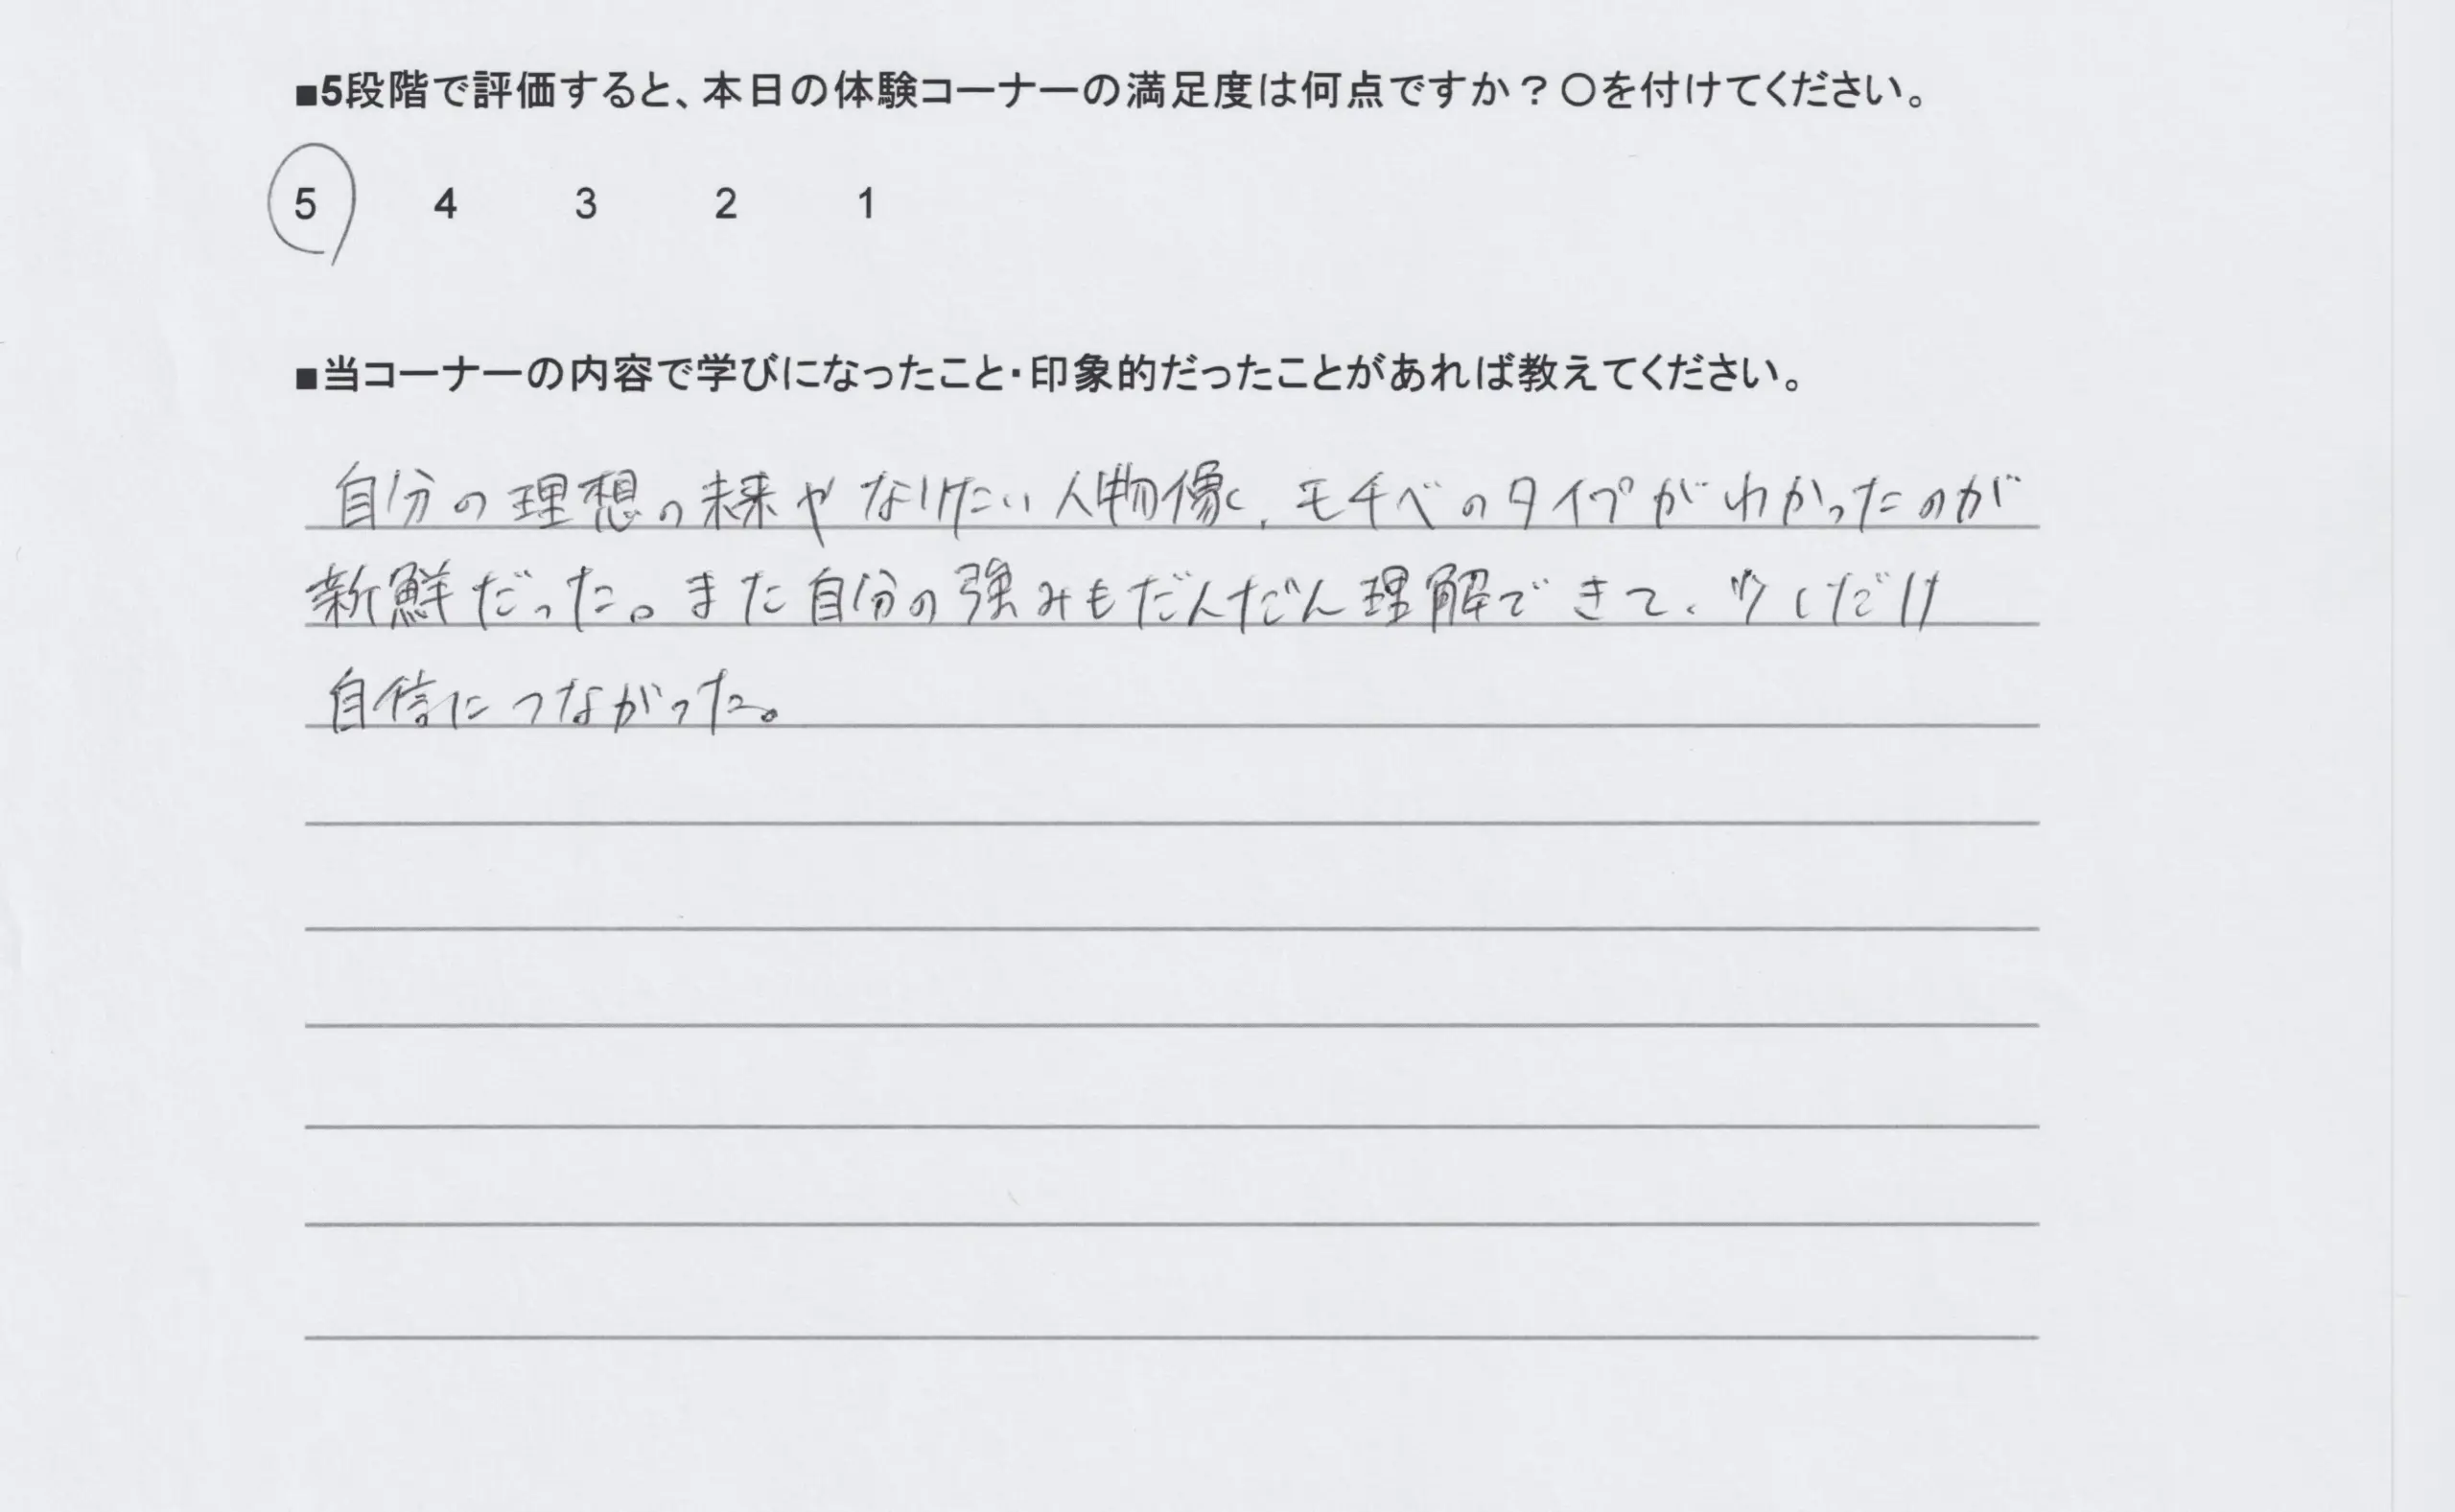 ■5段階で評価すると、本日の体験コーナーの満足度は何点ですか？〇を付けてください。
5 4 3 2 1
■当コーナーの内容で学びになったこと・印象的だったことがあれば教えてください。
自分の理想の未来やなりたい人物像、モチベのタイプがわかったのが
新鮮だった。また自分の強みもだんだん理解できて、少しだけ
自信につながった。